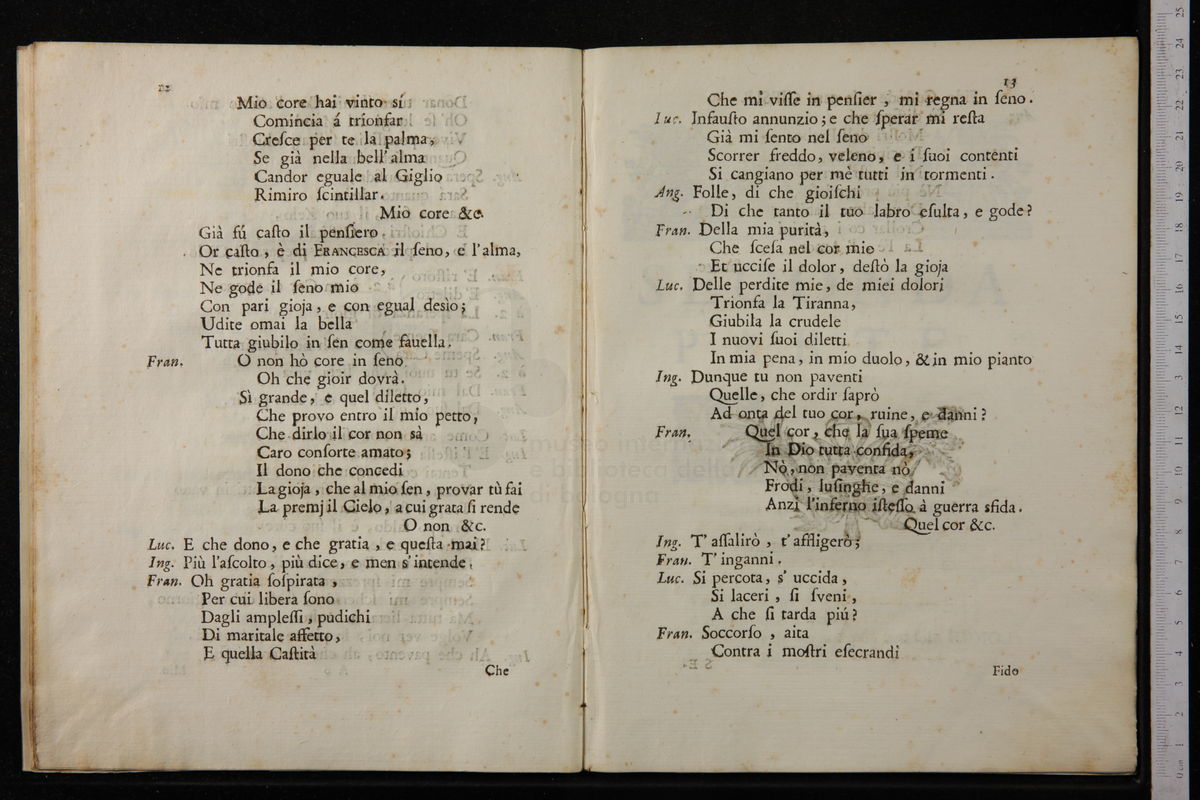 12
Mio core hai vinto sí
Comincia á trionfar
Creſce per te la palma,
Se già nella bell' alma
Candor eguale al Giglio
Rimiro ſcintillar.
Mio core &c.
Già fú caſto il penſiero.
Or caſto, è di FRANCESCA il ſeno, e l'alma,
Ne trionfa il mio core,
Ne gode il ſeno mio
Con pari gioja, e con egual desìo;
Udite omai la bella
Tutta giubilo in ſen come fauella.
Fran. O non hò core in ſeno
Oh che gioir dovrà.
Sì grande, e quel diletto,
Che provo entro il mio petto,
Che dirlo il cor non sà
Caro conſorte amato;
Il dono che concedi
La gioja, che al mio ſen, provar tù fai
La premj il Cielo, a cui grata ſi rende
O non &c.
Luc. E che dono, e che gratia, e queſta mai?
Ing. Più l'aſcolto, più dice, e men s'intende.
Fran. Oh gratia ſoſpirata,
Per cui libera ſono
Dagli ampleſſi, pudichi
Di maritale affetto,
E quella Caſtità
Che
13
Che mi viſſe in penſier, mi regna in ſeno.
Luc. Infauſto annunzio; e che ſperar mi reſta
Già mi ſento nel ſeno
Scorrer freddo, veleno, e i ſuoi contenti
Si cangiano per mè tutti in tormenti.
Ang. Folle, di che gioiſchi
Di che tanto il tuo labro eſulta, e gode?
Fran. Della mia purità,
Che ſceſa nel cor mio
Et ucciſe il dolor, deſtò la gioja
Luc. Delle perdite mie, de miei dolori
Trionfa la Tiranna,
Giubila la crudele
I nuovi ſuoi diletti
In mia pena, in mio duolo, & in mio pianto
Ing. Dunque tu non paventi
Quelle, che ordir ſaprò
Ad onta del tuo cor, ruine, e danni?
Fran. Quel cor, che la ſua ſpeme
In Dio tutta confida,
Nò, non paventa nò
Frodi, luſinghe, e danni
Anzi l'inferno iſteſſo à guerra sfida.
Quel cor &c.
Ing. T' aſſalirò, t'affligerò;
Fran. T'inganni.
Luc. Si percota, s' uccida,
Si laceri, ſi ſveni,
A che ſi tarda piú?
Fran. Soccorſo, aita
Contra i moſtri eſecrandi
Fido